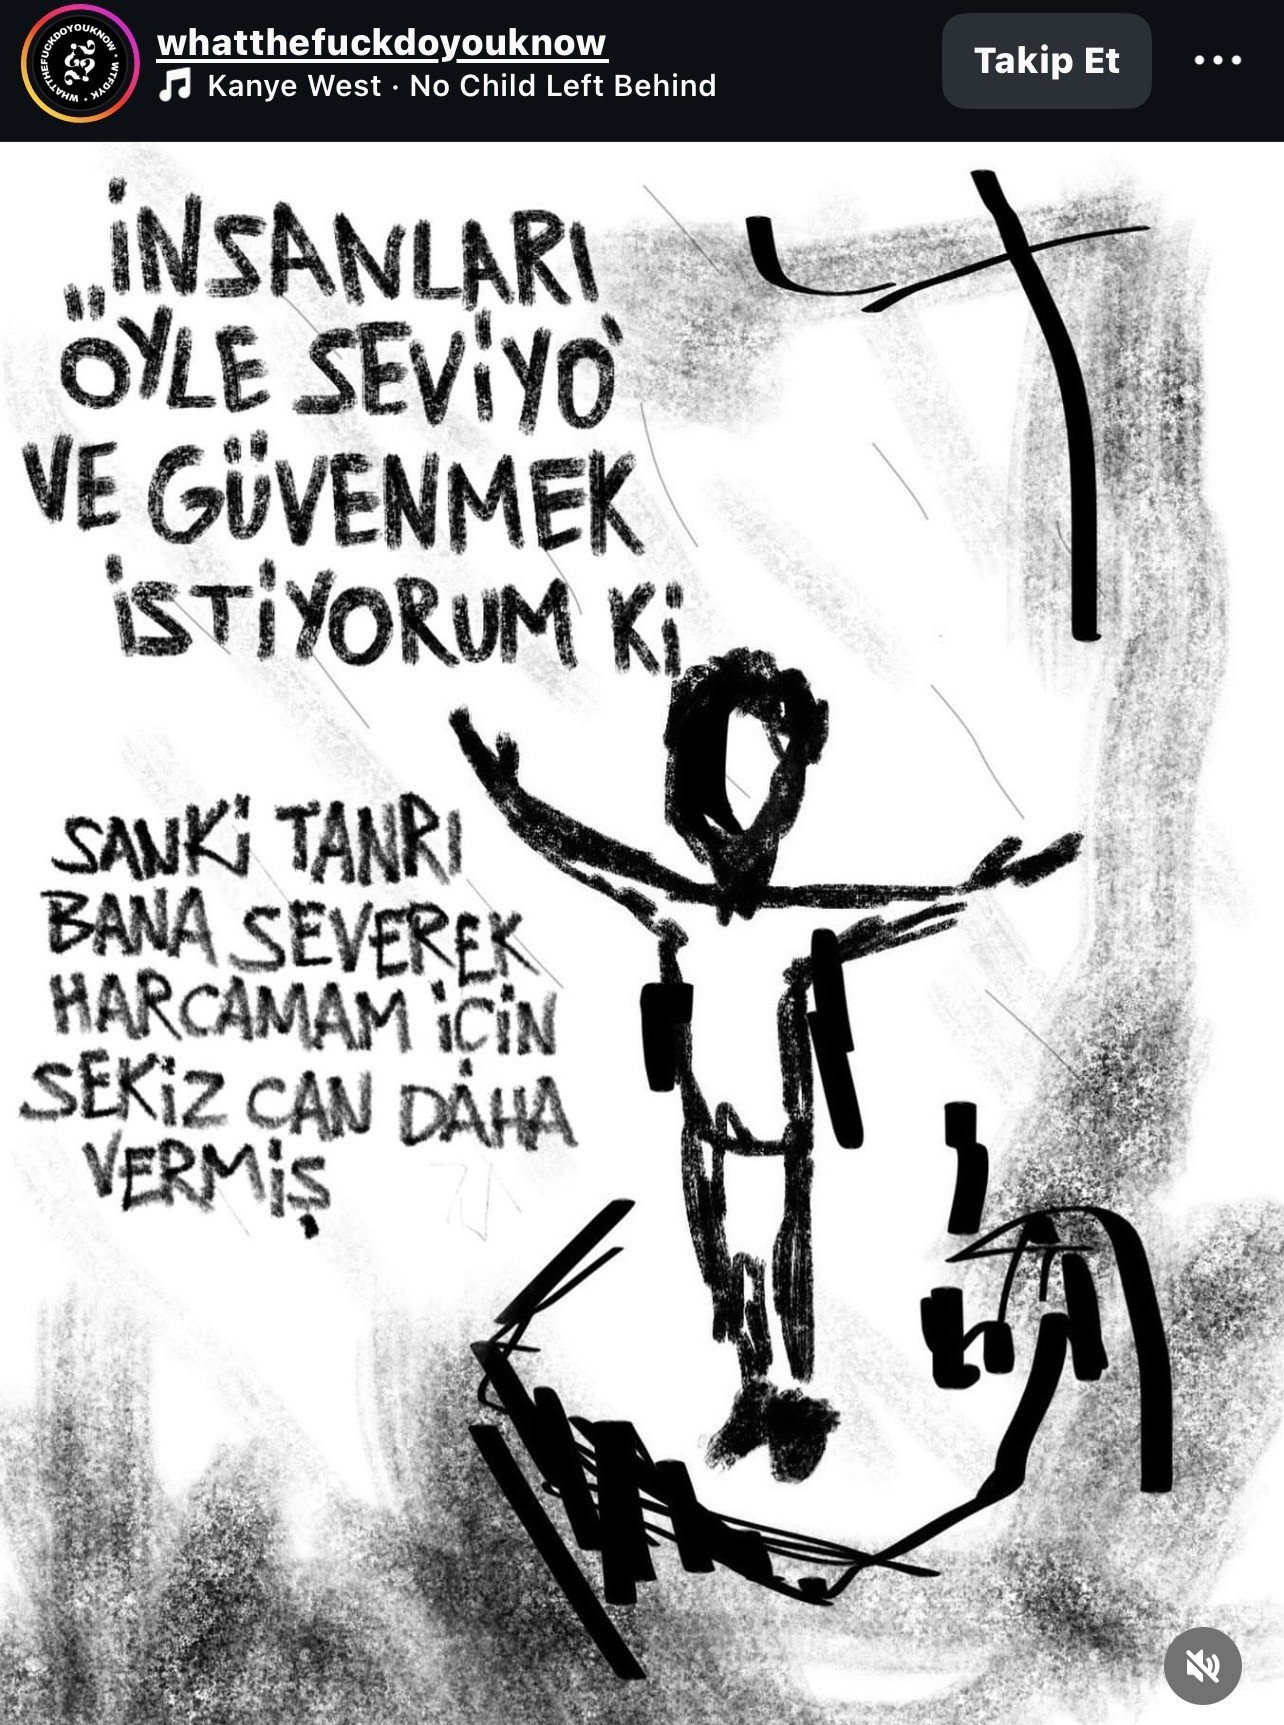 whatthefuckdoyouknow
Kanye West · No Child Left Behind
Takip Et
İNSANLARI
ÖYLE SEVİYO
VE GÜVENMEK
İSTİYORUM Kİ
SANKİ TANRI
BANA SEVEREK
HARCAMAM İÇİN
SEKİZ CAN DAHA
VERMİŞ